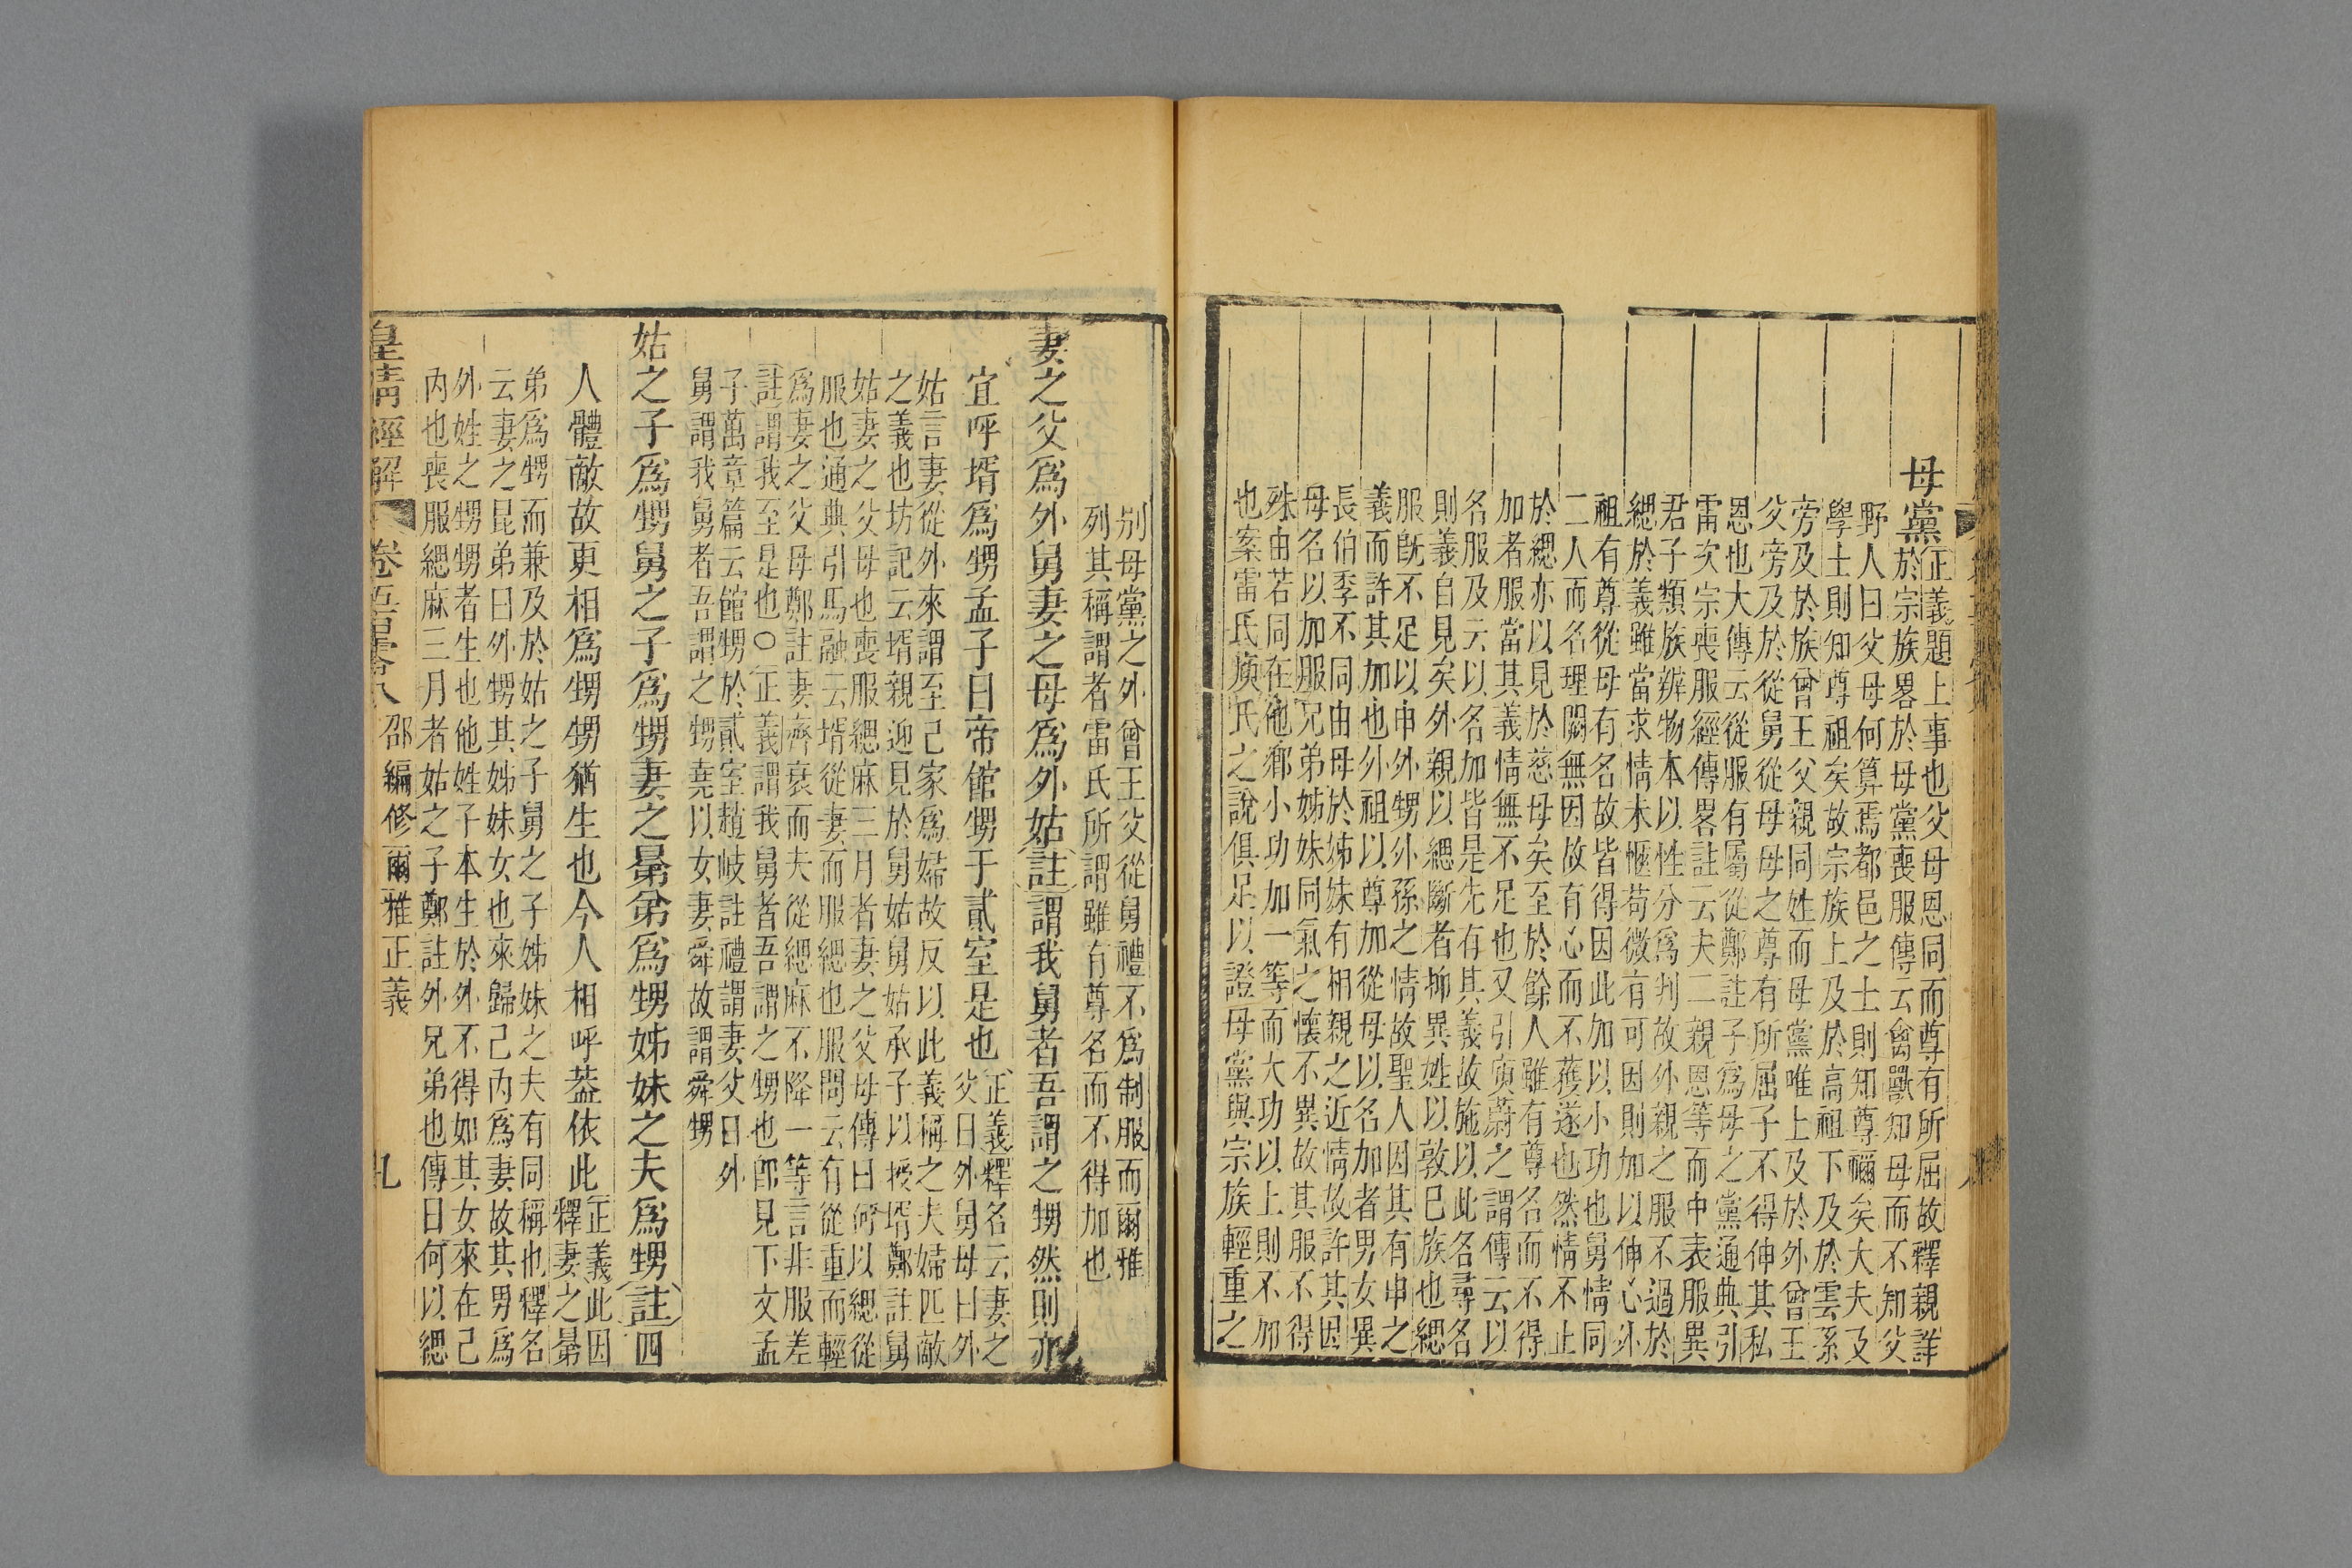 母黨正義題上事也父母恩同而尊有所屈故釋親詳
於宗族畧於母黨喪服傳云禽獸知母而不知父
野人曰父母何算焉都邑之士則知尊禰矣大夫及
學士則知尊祖矣故宗族上及於高祖下及於雲系
旁及於族曾王父親同姓而母黨唯上及於外曾王
父旁及於從舅從母母之尊有所屈子不得伸其私
恩也大傳云從服有屬從鄭註子爲母之黨通典引
雷次宗喪服經傳畧註云夫二親恩等而中表服異
君子類族辨物本以性分爲判故外親之服不過於
緦於義雖當求情未愜苟微有可因則加以伸心外
祖有尊從母有名故皆得因此加以小功也舅情同
二人而名理闕無因故有心而不獲遂也然情不止
於緦亦以見於慈母矣至於餘人雖有尊名而不得
加者服當其義情無不足也又引庾蔚之謂傳云以
名服及云以名加皆是先有其義故施以此名尋名
則義自見矣外親以緦斷者抑異姓以敦己族也緦
服旣不足以申外甥外孫之情故聖人因其有申之
義而許其加也外祖以尊加從母以名加者男女異
長伯季不同由母於姊妹有相親之近情故許其因
母名以加服兄弟姊妹同氣之懷不異故其服不得
殊由若同在他鄉小功加一等而大功以上則不加
也案雷氏庾氏之說俱足以證母黨與宗族輕重之
別母黨之外曾王父從舅禮不爲制服而爾雅
列其稱謂者雷氏所謂雖有尊名而不得加也
妻之父爲外舅妻之母爲外姑註謂我舅者吾謂之甥然則亦
宜呼壻爲甥孟子曰帝館甥于貳室是也正義釋名云妻之
父曰外舅母曰外
姑言妻從外來謂至己家爲婦故反以此義稱之夫婦匹敵
之義也坊記云壻親迎見於舅姑舅姑承子以授壻鄭註舅
姑妻之父母也喪服緦麻三月者妻之父母傳曰何以緦從
服也通典引馬融云壻從妻而服緦也服問云有從重而輕
爲妻之父母鄭註妻齊衰而夫從緦麻不降一等言非服差
註謂我至是也〇正義謂我舅者吾謂之甥也卽見下文孟
子萬章篇云館甥於貳室趙岐註禮謂妻父曰外
舅謂我舅者吾謂之甥堯以女妻舜故謂舜甥
姑之子爲甥舅之子爲甥妻之晜弟爲甥姊妹之夫爲甥註四
人體敵故更相爲甥甥猶生也今人相呼葢依此正義此因
釋妻之晜
弟爲甥而兼及於姑之子舅之子姊妹之夫有同稱也釋名
云妻之昆弟曰外甥其姊妹女也來歸己內爲妻故其男爲
外姓之甥甥者生也他姓子本生於外不得如其女來在己
內也喪服緦麻三月者姑之子鄭註外兄弟也傳曰何以緦
皇清經解 卷五百八 邵編修爾雅正義 九